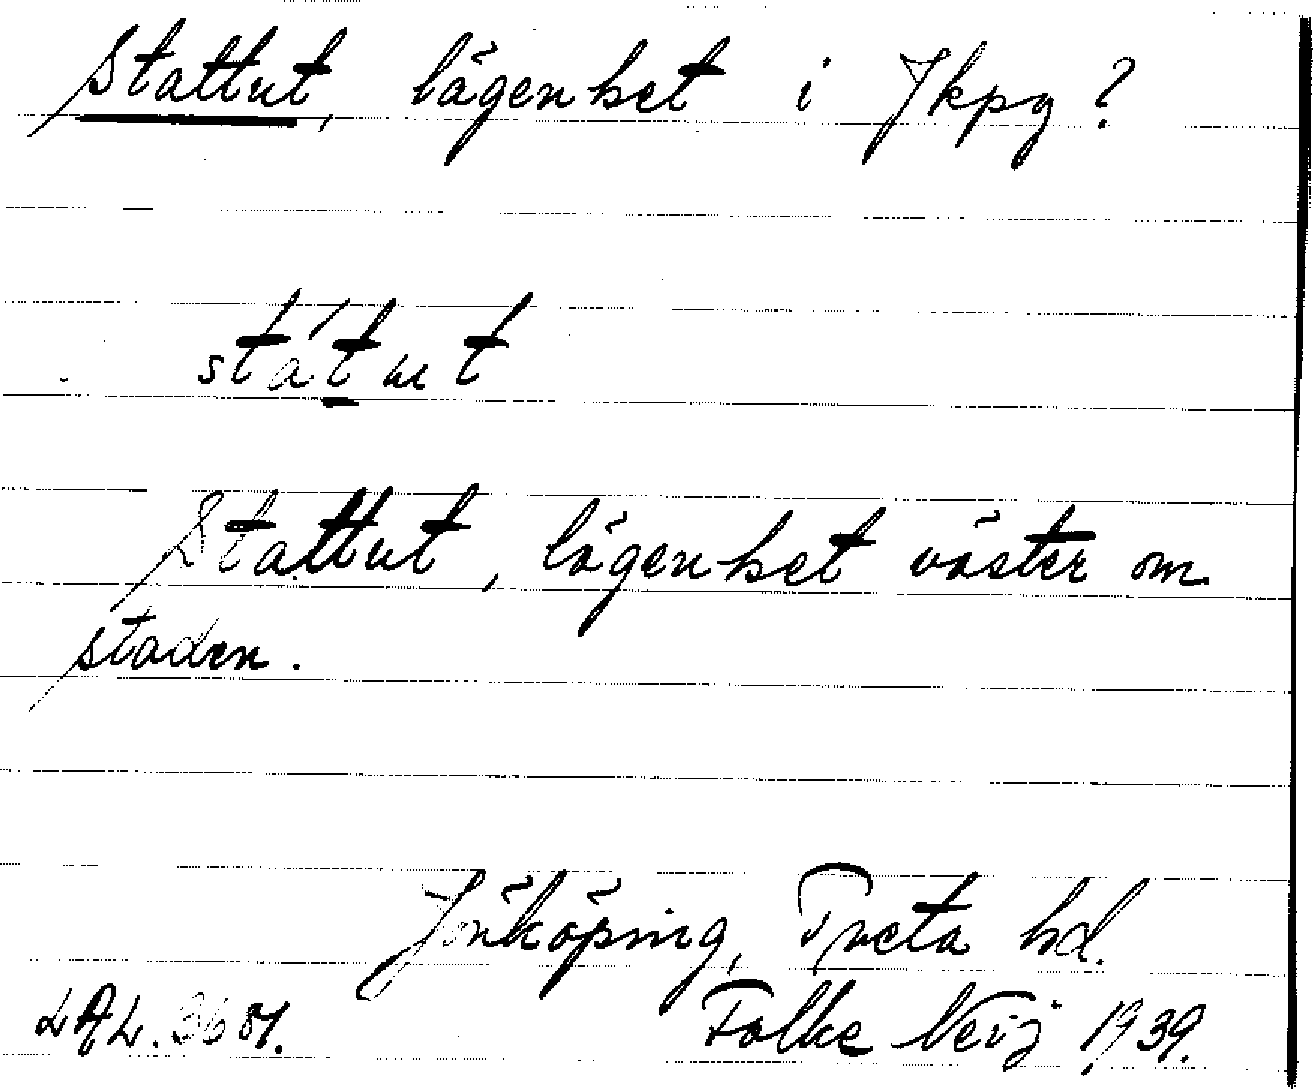 Stattut, lägenhet i Jkpg?
státut
Stattut, lägenhet väster om
staden.
Jönköping, Tveta hd.
LAL. Folke Neij 1939.